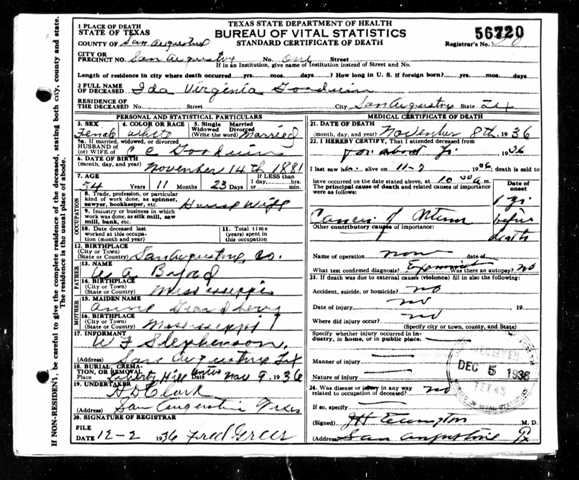 TEXAS STATE DEPARTMENT OF HEALTH
BUREAU OF VITAL STATISTICS
STANDARD CERTIFICATE OF DEATH
56720
Registrar's No.
1 PLACE OF DEATH
STATE OF TEXAS
COUNTY OF San Augustine
CITY OR PRECINCT NO. San Augustine No. one Street
If in an Institution, give name of Institution instead of Street and No.
Length of residence in city where death occurred yrs. mos. days. ? How long in U. S. if foreign born? yrs. mos. days.
2 FULL NAME OF DECEASED Ida Virginia Goodwin
RESIDENCE OF THE DECEASED No. Street City San Augustine State Tex
PERSONAL AND STATISTICAL PARTICULARS
3. SEX Female
4. COLOR OR RACE white
5. Single Married Widowed Divorced Married
5a. If married, widowed, or divorced
HUSBAND of
(or) WIFE of C C Goodwin
6. DATE OF BIRTH
(month, day, and year) November 14th 1881
7. AGE 54 Years 11 Months 23 Days
If LESS than 1 day, hrs. min.
OCCUPATION
8. Trade, profession, or particular kind of work done, as spinner, sawyer, bookkeeper, etc. House Wife
9. Industry or business in which work was done, as silk mill, saw mill, bank, etc.
10. Date deceased last worked at this occupation (month and year)
11. Total time (years) spent in this occupation
12. BIRTHPLACE
(City or Town)
(State or Country) San Augustine, Co.
FATHER
13. NAME
14. BIRTHPLACE
(City or Town)
(State or Country) Mississippi
MOTHER
15. MAIDEN NAME
16. BIRTHPLACE
(City or Town)
(State or Country) Mississippi
17. INFORMANT W F Stephenson,
(Address) San Augustine Tex
18. BURIAL, CREMATION, OR REMOVAL
Place Liberty Hill Date Nov 9, 1936
19. UNDERTAKER H D Clark
(Address) San Augustine Texas
20. SIGNATURE OF REGISTRAR
FILE DATE 12-2 1936 Fred Greer
MEDICAL CERTIFICATE OF DEATH
21. DATE OF DEATH
(month, day, and year) November 8th, 1936
22. I HEREBY CERTIFY, That I attended deceased from
1936
I last saw alive on 11-7 1936
to have occurred on the date stated above, at 10 30 a m.
The principal cause of death and related causes of importance were as follows:
Date of onset
1 yr.
before
death
Cancer of Uterus
Other contributory causes of importance:
Name of operation none date of
What test confirmed diagnosis? Was there an autopsy? No
23. If death was due to external causes (violence) fill in also the following:
Accident, suicide, or homicide? no
Date of injury no 19
Where did injury occur? no
(Specify city or town, county, and State)
Specify whether injury occurred in industry, in home, or in public place.
Manner of injury
Nature of injury
DEC 5 1936
TEXAS
24. Was disease or injury in any way related to occupation of deceased? no
If so, specify
(Signed) M. D.
(Address) San Augustine Tx
IF NON-RESIDENT, be careful to give the complete residence of the deceased, stating both city, county and state.
The residence is the usual place of abode.